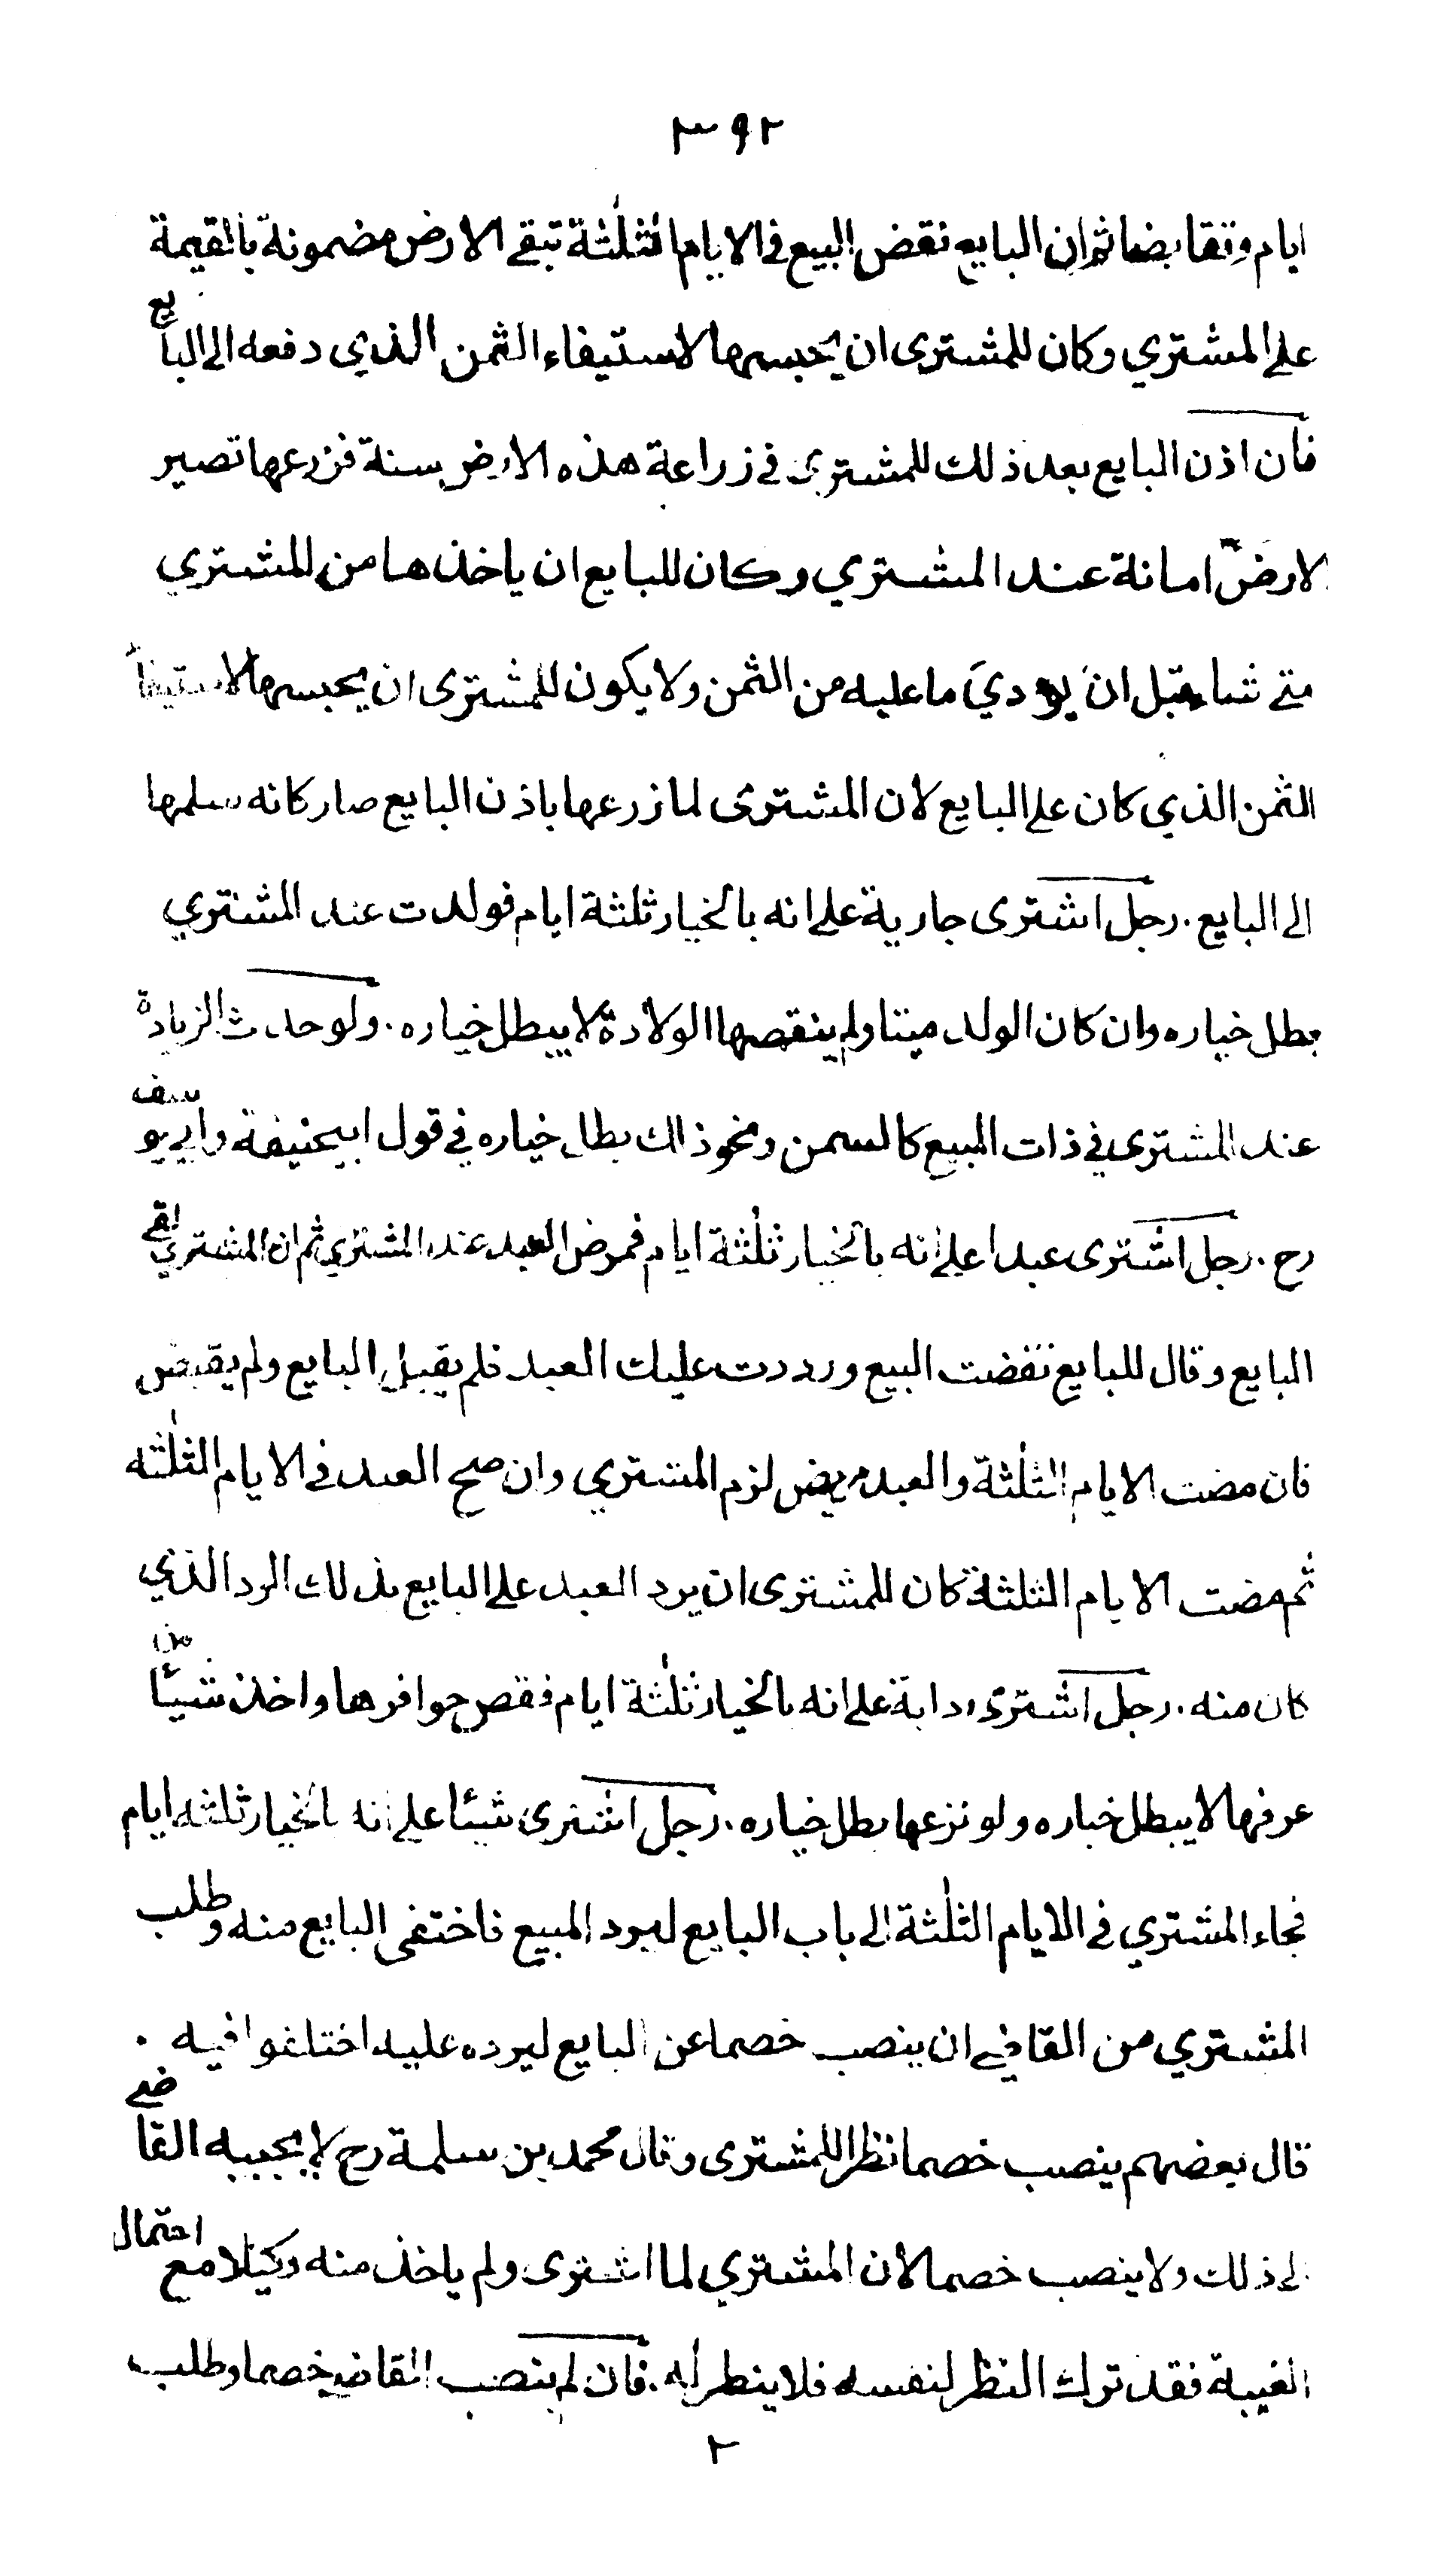 ٣٩٢
ايام وتقابضا ثم ان البايع نقض البيع في الايام الثلثة تبقى الارض مضمونة بالقيمة
على المشتري وكان للمشترى ان يحبسها لاستيفاء الثمن الذي دفعه الى البايع
فان اذن البايع بعد ذلك للمشترى في زراعة هذه الارض سنة فزرعها تصير
الارض امانة عند المشتري وكان للبايع ان ياخذها من المشتري
متى شاء قبل ان يودي ما عليه من الثمن ولا يكون للمشترى ان يحبسها لاستيفاء
الثمن الذي كان على البايع لان المشترى لما زرعها باذن البايع صار كانه سلمها
الى البايع . رجل اشترى جارية على انه بالخيار ثلثة ايام فولدت عند المشتري
بطل خياره وان كان الولد ميتا ولم ينقصها الولادة لا يبطل خياره . ولو حدث الزيادة
عند المشترى في ذات المبيع كالسمن ونحو ذالك بطل خياره في قول ابيحنيفة وابي يوسف
رح . رجل اشترى عبدا على انه بالخيار ثلثة ايام فمرض العبد عند المشتري ثم ان المشتري لقي
البايع وقال للبايع نقضت البيع ورددت عليك العبد فلم يقبل البايع ولم يقبض
فان مضت الايام الثلثة والعبد مريض لزم المشتري وان صح العبد في الايام الثلثه
ثم مضت الايام الثلثة كان للمشترى ان يرد العبد على البايع بذلك الرد الذي
كان منه . رجل اشترى دابة على انه بالخيار ثلثة ايام فقص حوافرها واخذ شيئا من
عرفها لا يبطل خياره ولو نزعها بطل خياره . رجل اشترى شيئا على انه بالخيار ثلثه ايام
فجاء المشتري في الايام الثلثة الى باب البايع ليرد المبيع فاختفى البايع منه وطلب
المشتري من القاضي ان ينصب خصما عن البايع ليرده عليه اختلفوا فيه .
قال بعضهم ينصب خصما نظرا للمشترى وقال محمد بن سلمة رح لا يجيبه القاضي
الى ذلك ولا ينصب خصما لان المشتري لما اشترى ولم ياخذ منه وكيلا مع احتمال
الغيبة فقد ترك النظر لنفسه فلا ينظر له . فان لم ينصب القاضي خصما وطلب
٢